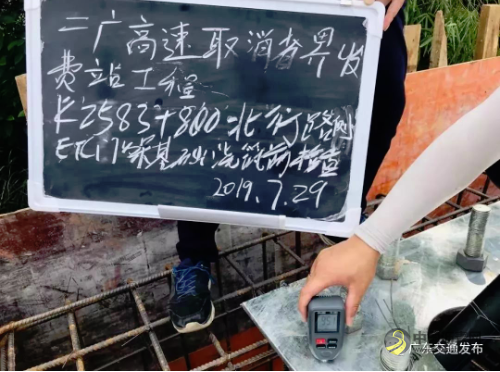 二广高速取消省界收
费站工程
K2583+800北行路侧
ETC门架基础浇筑前检查
2019.7.29
广东交通发布